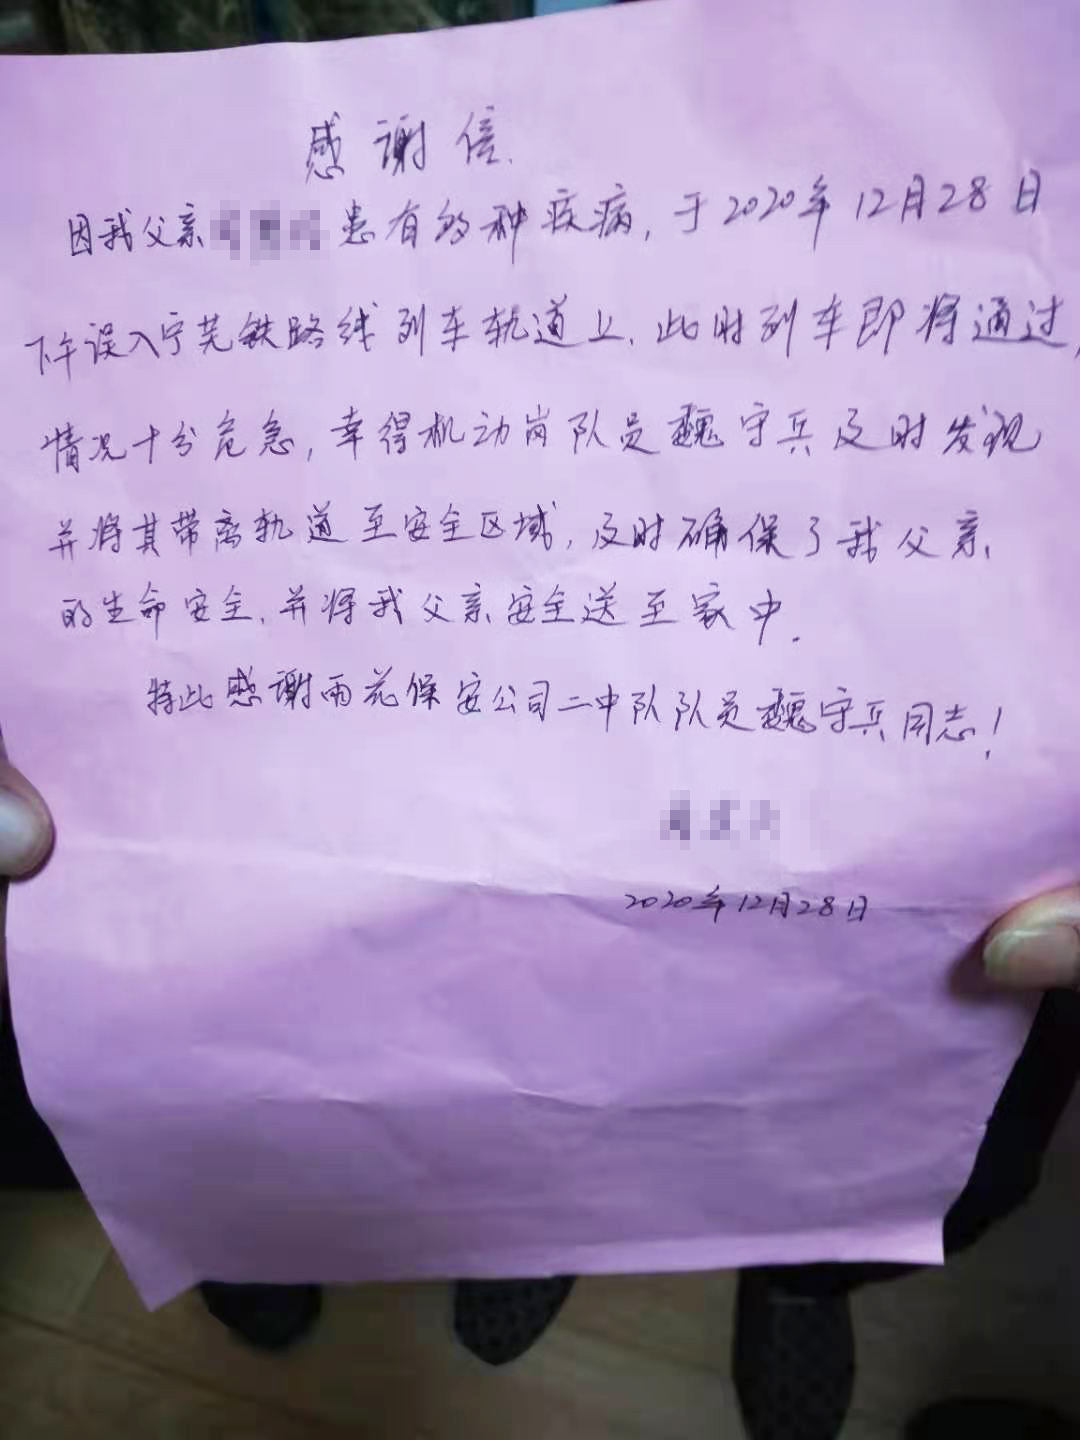 感谢信.
因我父亲患有多种疾病, 于2020年12月28日
下午误入宁芜铁路线列车轨道上, 此时列车即将通过,
情况十分危急, 幸得机动岗队员魏守兵及时发现
并将其带离轨道至安全区域, 及时确保了我父亲
的生命安全, 并将我父亲安全送至家中.
特此感谢雨花保安公司二中队队员魏守兵同志!
2020年12月28日